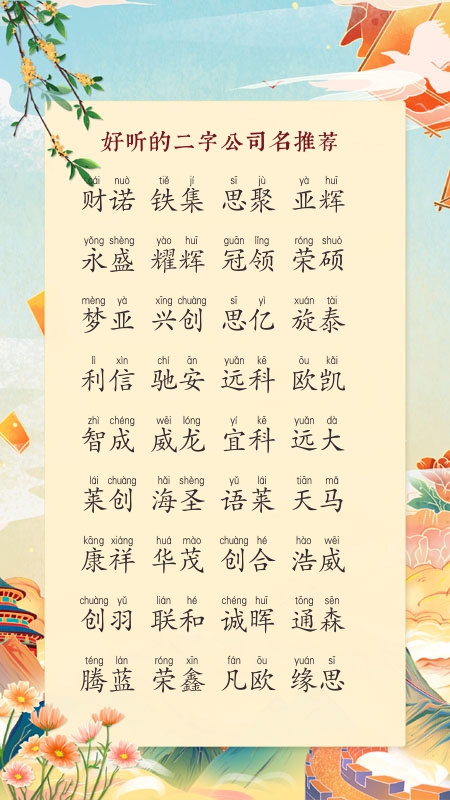 好听的二字公司名推荐
cái nuò tiě jí sī jù yà huī
财诺 铁集 思聚 亚辉
yǒng shèng yào huī guān lǐng róng shuò
永盛 耀辉 冠领 荣硕
mèng yà xīng chuàng sī yì xuán tài
梦亚 兴创 思亿 旋泰
lì xìn chí ān yuǎn kē ōu kǎi
利信 驰安 远科 欧凯
zhì chéng wēi lóng yí kē yuǎn dà
智成 威龙 宜科 远大
lái chuàng hǎi shèng yǔ lái tiān mǎ
莱创 海圣 语莱 天马
kāng xiáng huá mào chuàng hé hào wēi
康祥 华茂 创合 浩威
chuàng yǔ lián hé chéng huī tōng sēn
创羽 联和 诚晖 通森
téng lán róng xīn fán ōu yuán sī
腾蓝 荣鑫 凡欧 缘思